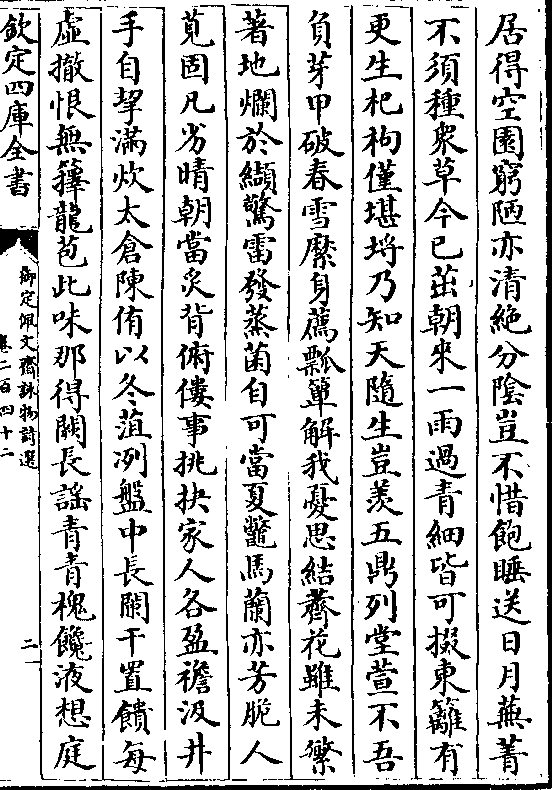 居得空園窮陋亦清絶分陰豈不惜飽睡送日月蕪菁
不須種衆草今已茁朝來一雨過青細皆可掇東籬有
更生杞枸僅堪埒乃知天隨生豈羨五鼎列堂萱不吾
負芽甲破春雪縻身薦瓢簞解我憂思結薺花雖未繁
著地爛於纈驚雷發蒸菌自可當夏鼈馬蘭亦芳脆人
莧固凡劣晴朝當炙背俯僂事挑抉家人各盈襜汲井
手自挈滿炊太倉陳侑以冬菹冽盤中長闌干置饋每
虛撤恨無籜龍苞此味那得闕長謡青青槐饞液想庭
欽定四庫全書
御定佩文齋詠物詩選
卷二百四十二
二